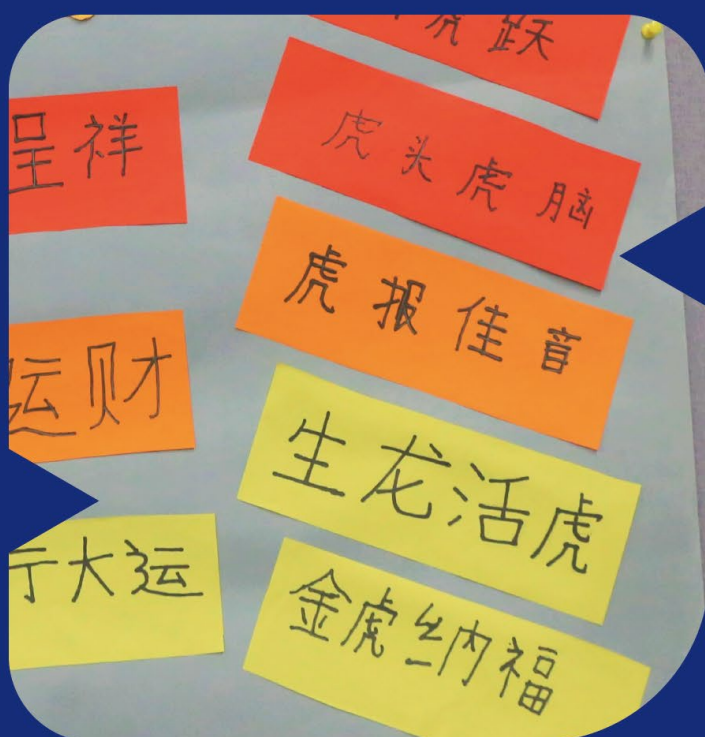 呈祥
运财
行大运
虎跃
虎头虎脑
虎报佳音
生龙活虎
金虎纳福